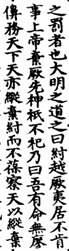 之罰者也大明之道之曰紂越厥夷居不肎
事上帝棄厥先神祇不祀乃曰吾有命無廖
務天下天亦縱棄紂而不葆察天以縱棄